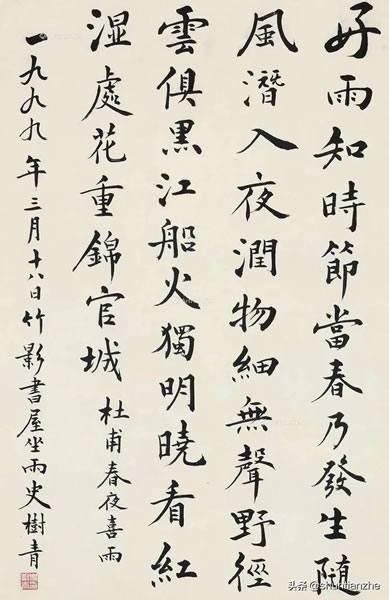 好雨知時節當春乃發生隨
風潛入夜潤物細無聲野徑
雲俱黑江船火獨明曉看紅
湿處花重錦官城 杜甫春夜喜雨
一九九九年三月十八日竹影書屋坐雨史樹青
头条 @shuntianzhe